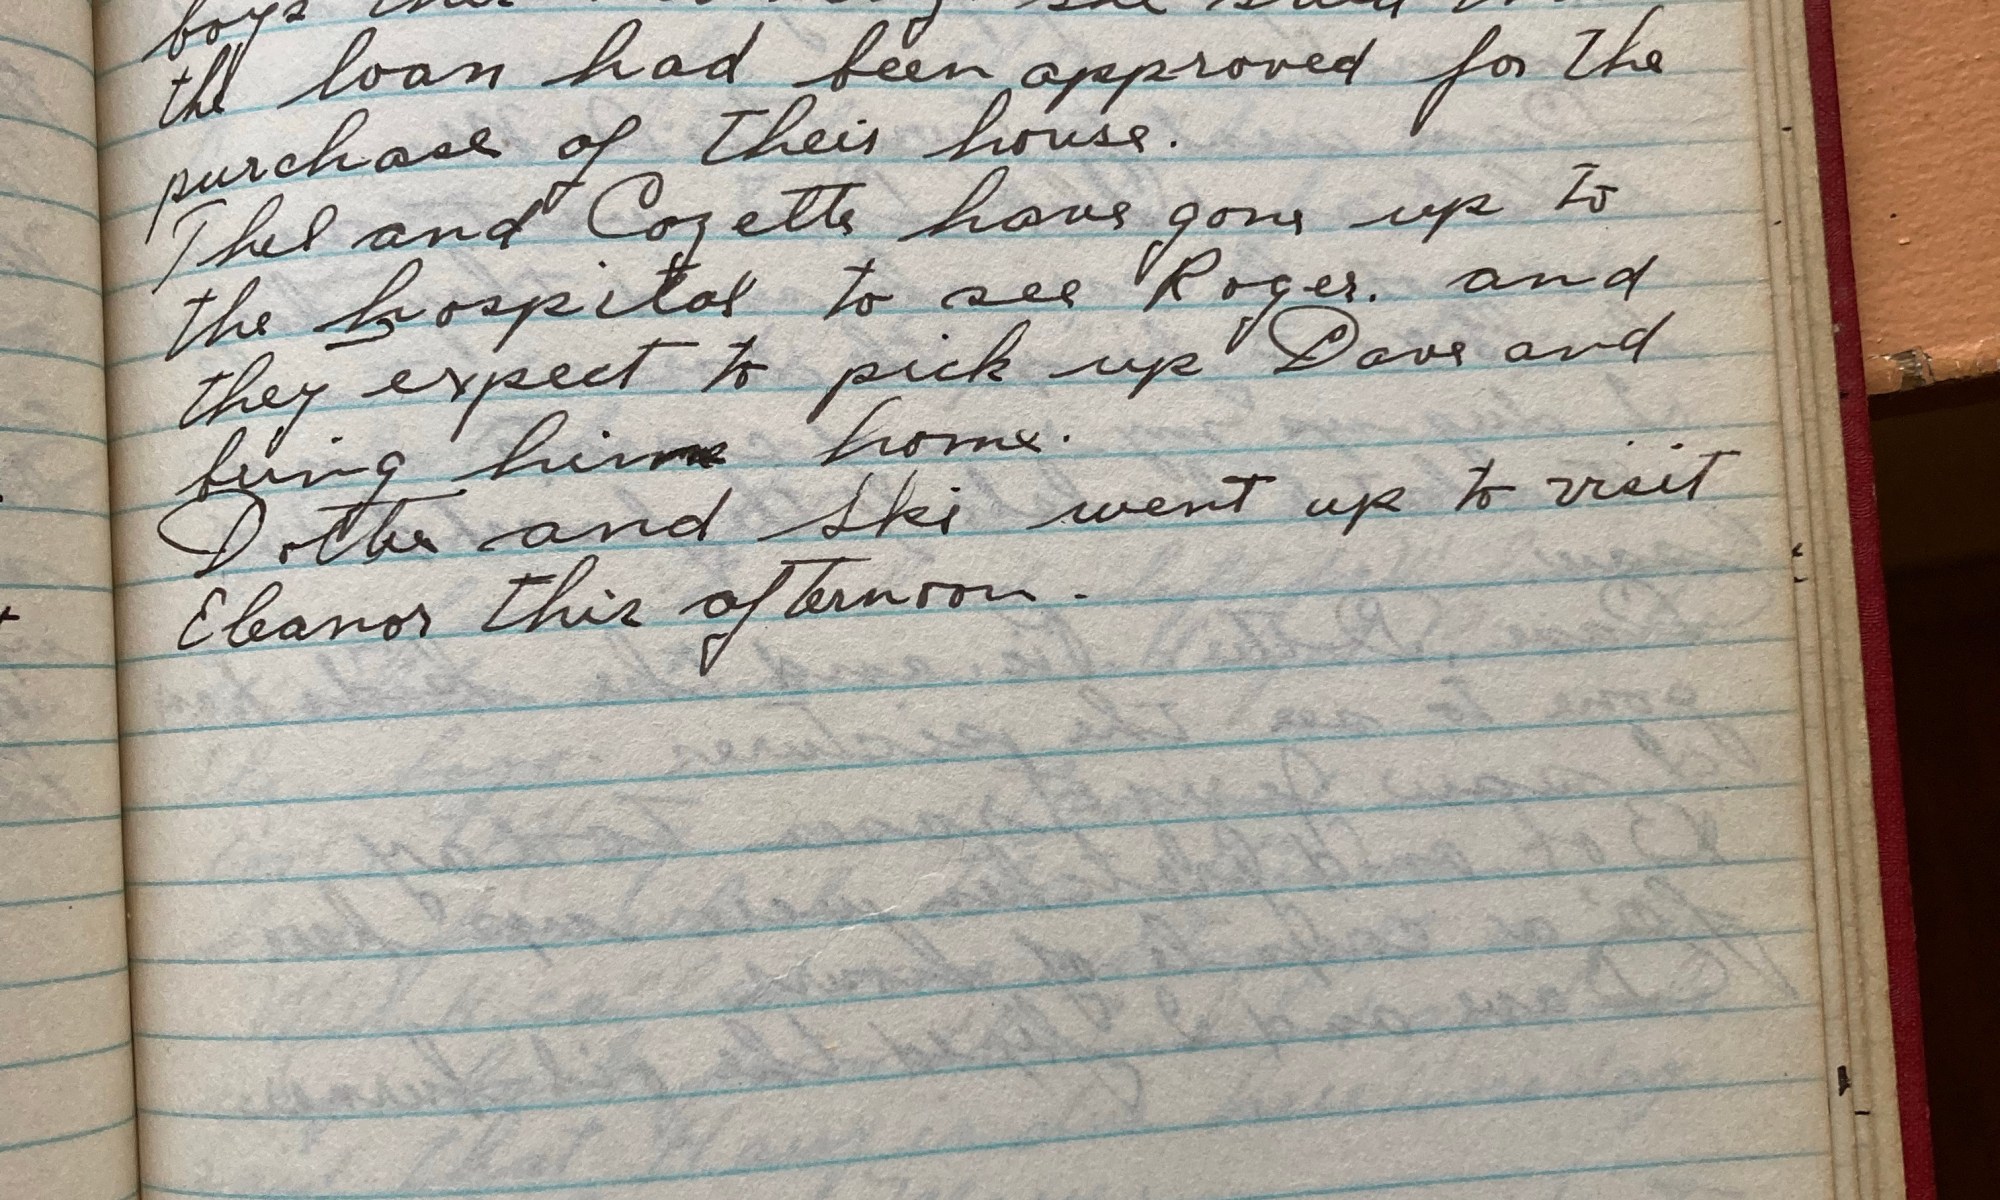 boys
the loan had been approved for the
purchase of their house.
Thel and Cozette have gone up to
the hospital to see Roger. and
they expect to pick up Dave and
bring him home.
Dottie and Ski went up to visit
Eleanor this afternoon.